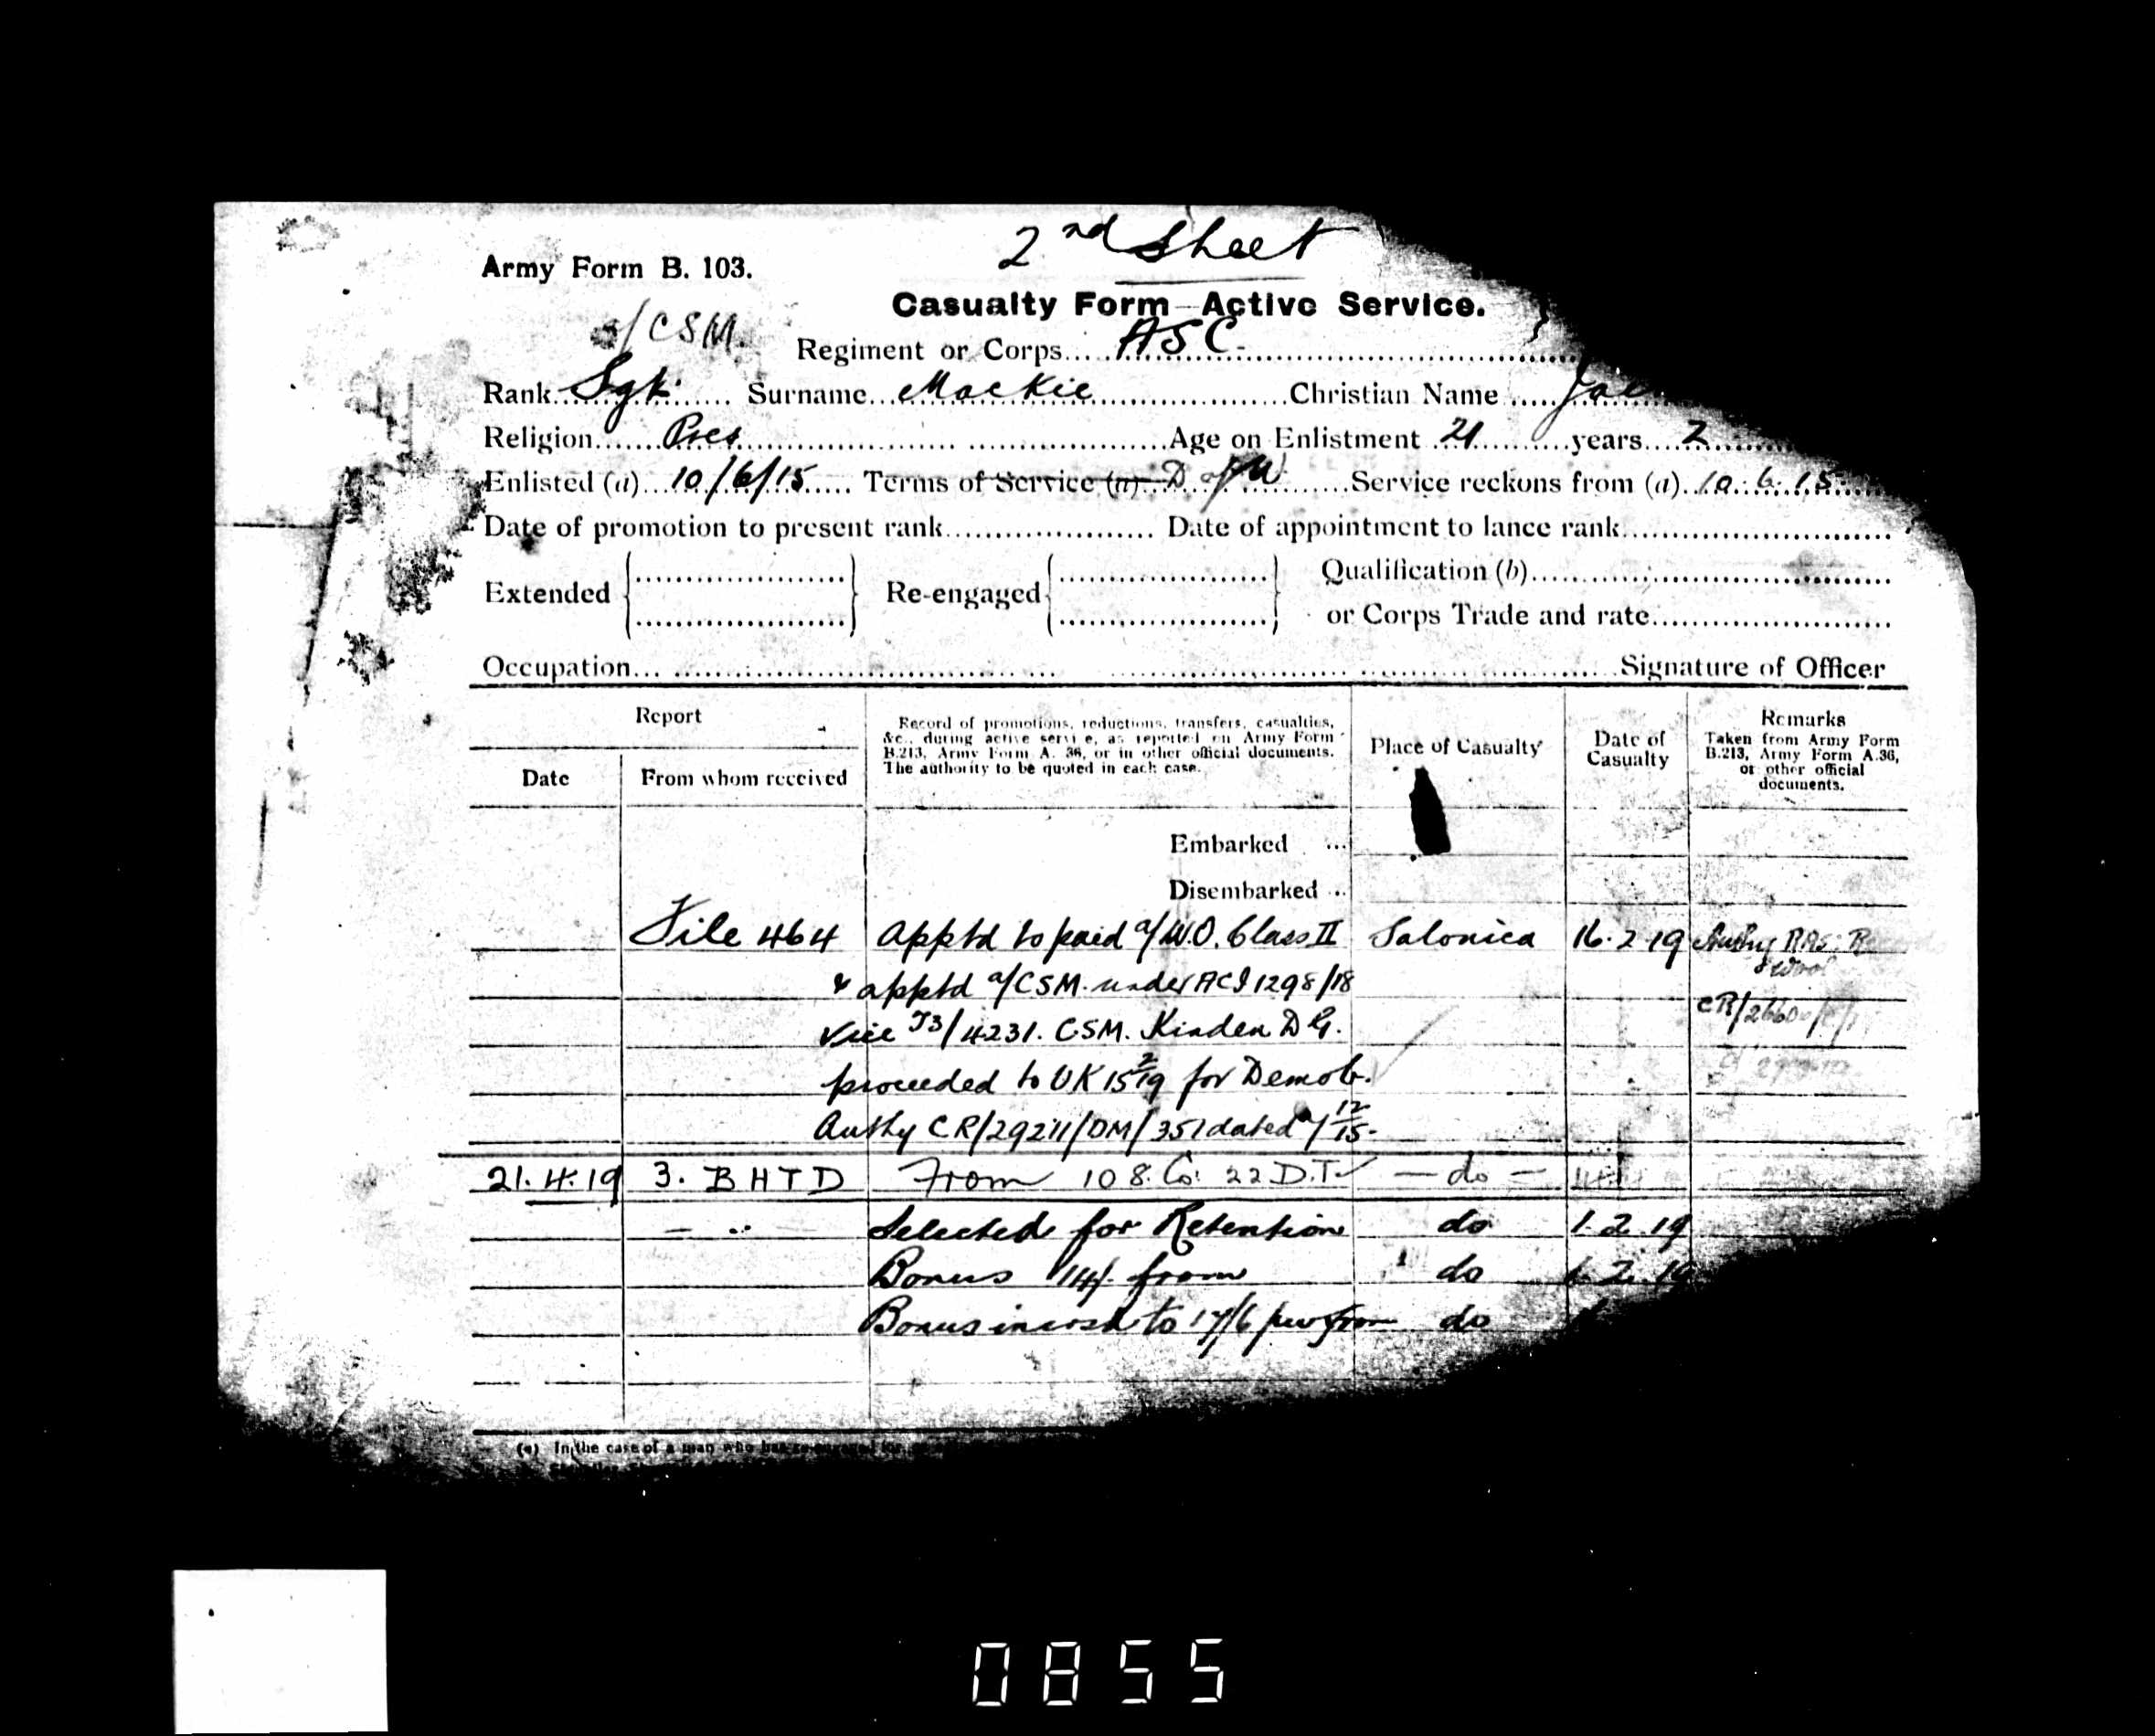 2nd Sheet
Army Form B. 103.
Casualty Form—Active Service.
a/CSM.
Regiment or Corps ASC.
Rank Sgt. Surname Mackie Christian Name
Religion Pres Age on Enlistment 21 years 2
Enlisted (a) 10/6/15 Terms of Service (a) D of W Service reckons from (a) 10.6.15
Date of promotion to present rank Date of appointment to lance rank
Extended Re-engaged Qualification (b)
or Corps Trade and rate
Occupation Signature of Officer
Report
Date From whom received
Record of promotions, reductions, transfers, casualties, &c., during active service, as reported on Army Form B.213, Army Form A. 36, or in other official documents. The authority to be quoted in each case.
Place of Casualty
Date of Casualty
Remarks
Taken from Army Form B.213, Army Form A.36, or other official documents.
Embarked ...
Disembarked ...
File 464 Apptd to paid a/W.O. Class II Salonica 16.2.19 Authy
& apptd a/CSM. under ACI 1298/18
vice T3/4231. CSM. Kinden D G. CR/
proceeded to UK 15 2/19 for Demob.
Authy CR/29211/DM/351 dated 12/15.
21.4.19 3. BHTD From 108. Co. 22 D.T. — do —
— " — Selected for Retention do 1.2.19
Bonus 14/- from do 1.2.19
Bonus to 17/6 pw from do
(a) In the case of a man who has re-engaged for,
0855